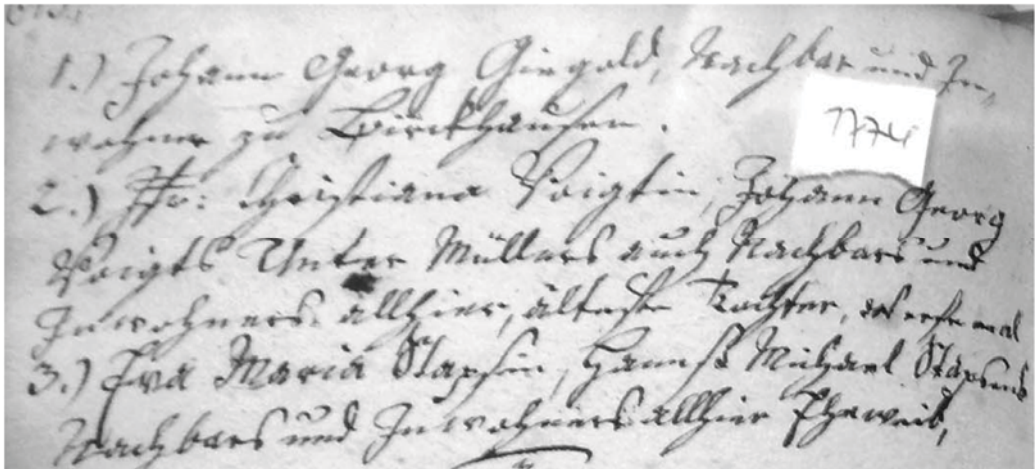 1.) Johann Georg Giegold, Nachbar und In-
wohner zu Birckhausen.
1774
2.) Fr: Christiana Voigtin, Johann Georg
Voigts Unter Müllers auch Nachbars und
Inwohners allhier, älteste Tochter, das erste mal
3.) Eva Maria Stapsin, Hannß Michael Stapsens
Nachbars und Inwohners allhier Eheweib,